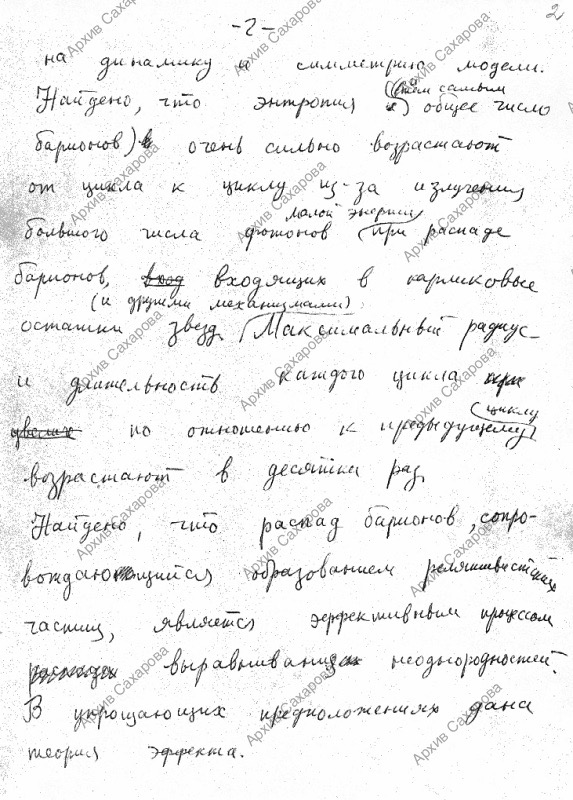 -2-
2
на динамику и симметрию модели.
Найдено, что энтропия (и тем самым
общее число
барионов) очень сильно возрастают
от цикла к циклу из-за излучения
большого числа фотонов малой энергии при распаде
барионов, вход входящих в карликовые
остатки звезд (и другими механизмами). Максимальный радиус
и длительность каждого цикла
увелич по отношению к предыдущему циклу
возрастают в десятки раз.
Найдено, что распад барионов, сопро-
вождающийся образованием релятивистских
частиц, является эффективным процессом
выравнивания неоднородностей.
В упрощающих предположениях дана
теория эффекта.
Архив Сахарова